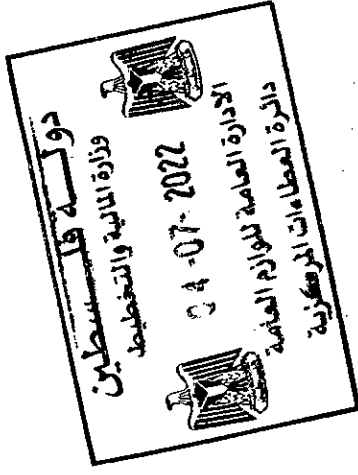 دولــة فلــسطين
وزارة المالية والتخطيط
04-07-2022
الادارة العامة للوازم العامة
دائرة العطاءات المركزية